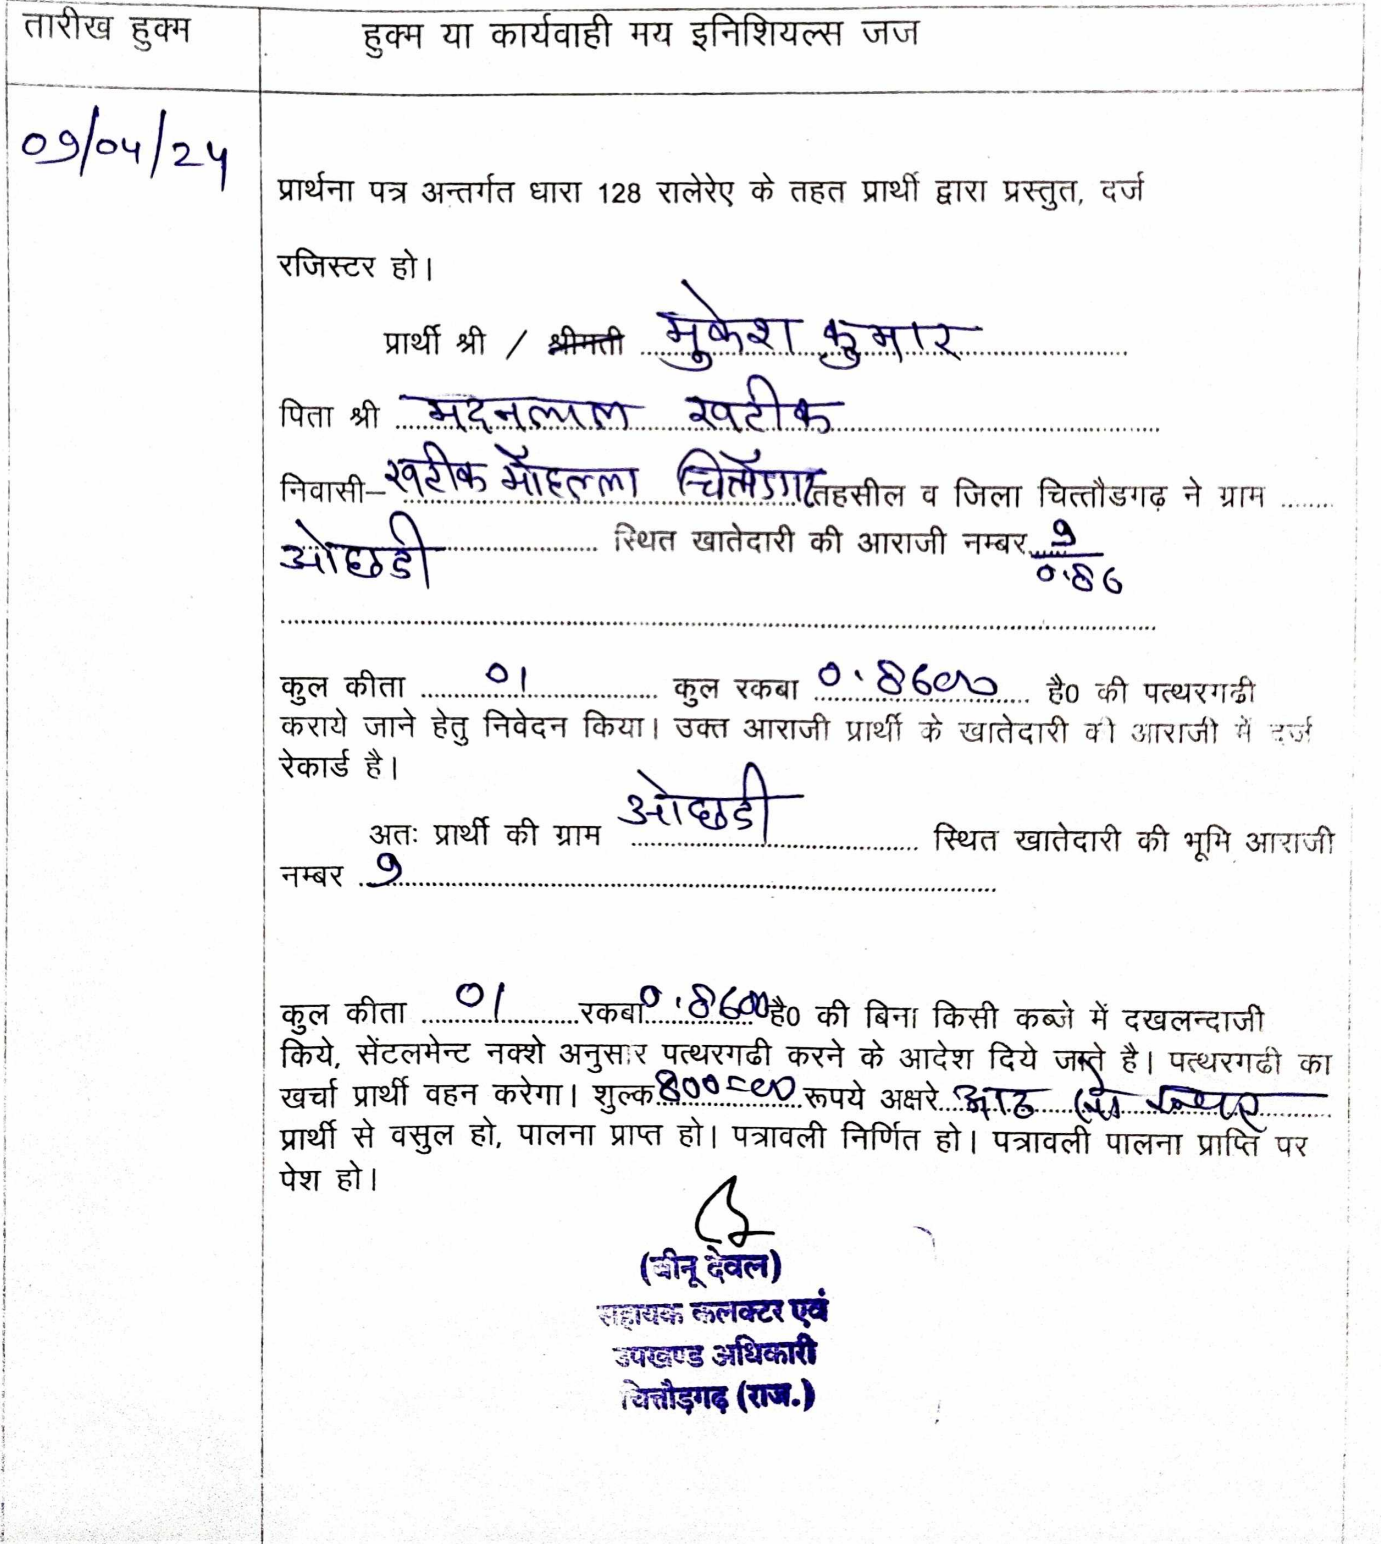 तारीख हुक्म
हुक्म या कार्यवाही मय इनिशियल्स जज
09/04/24
प्रार्थना पत्र अन्तर्गत धारा 128 रालेरेए के तहत प्रार्थी द्वारा प्रस्तुत, दर्ज
रजिस्टर हो।
प्रार्थी श्री / श्रीमती मुकेश कुमार
पिता श्री मदनलाल खटीक
निवासी– खटीक मोहल्ला तहसील व जिला चित्तौडगढ़ ने ग्राम ........
ओछडी ........ स्थित खातेदारी की आराजी नम्बर 9
0.86
कुल कीता 01 कुल रकबा 0.8600 है0 की पत्थरगढी
कराये जाने हेतु निवेदन किया। उक्त आराजी प्रार्थी के खातेदारी की आराजी में दर्ज
रेकार्ड है।
अतः प्रार्थी की ग्राम ओछडी स्थित खातेदारी की भूमि आराजी
नम्बर 9
कुल कीता 01 रकबा 0.8600 है0 की बिना किसी कब्जे में दखलन्दाजी
किये, सेंटलमेन्ट नक्शे अनुसार पत्थरगढी करने के आदेश दिये जाते है। पत्थरगढी का
खर्चा प्रार्थी वहन करेगा। शुल्क 800=00 रूपये अक्षरे आठ सौ रूपए
प्रार्थी से वसुल हो, पालना प्राप्त हो। पत्रावली निर्णित हो। पत्रावली पालना प्राप्ति पर
पेश हो।
(बीनू देवल)
सहायक कलक्टर एवं
उपखण्ड अधिकारी
चित्तौड़गढ़ (राज.)